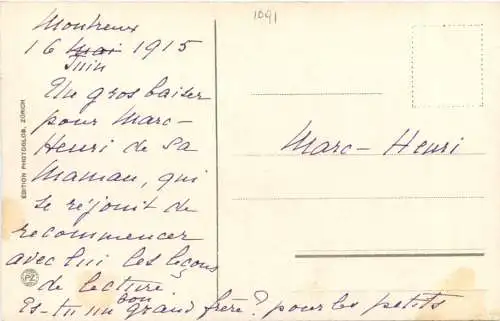 1091
Montreux
16 Mai 1915
Juin
Un gros baiser
pour Marc-
Henri de sa
Maman, qui
se réjouit de
recommencer
avec lui les leçons
de lecture.
bon
Es-tu un grand frère? pour les petits
Marc-Henri
EDITION PHOTOGLOB, ZÜRICH
PZ